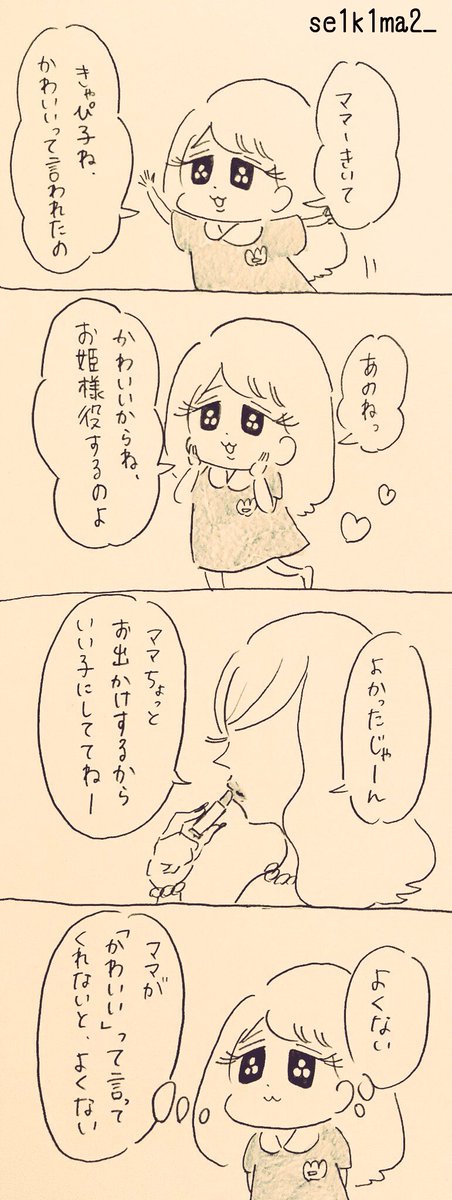 se1k1ma2_
ママーきいて
きゃぴ子ね、
かわいいって言われたの
あのねっ
かわいいからね、
お姫様役するのよ
よかったじゃーん
ママちょっと
お出かけするから
いい子にしててねー
よくない
ママが
「かわいい」って言って
くれないと、よくない